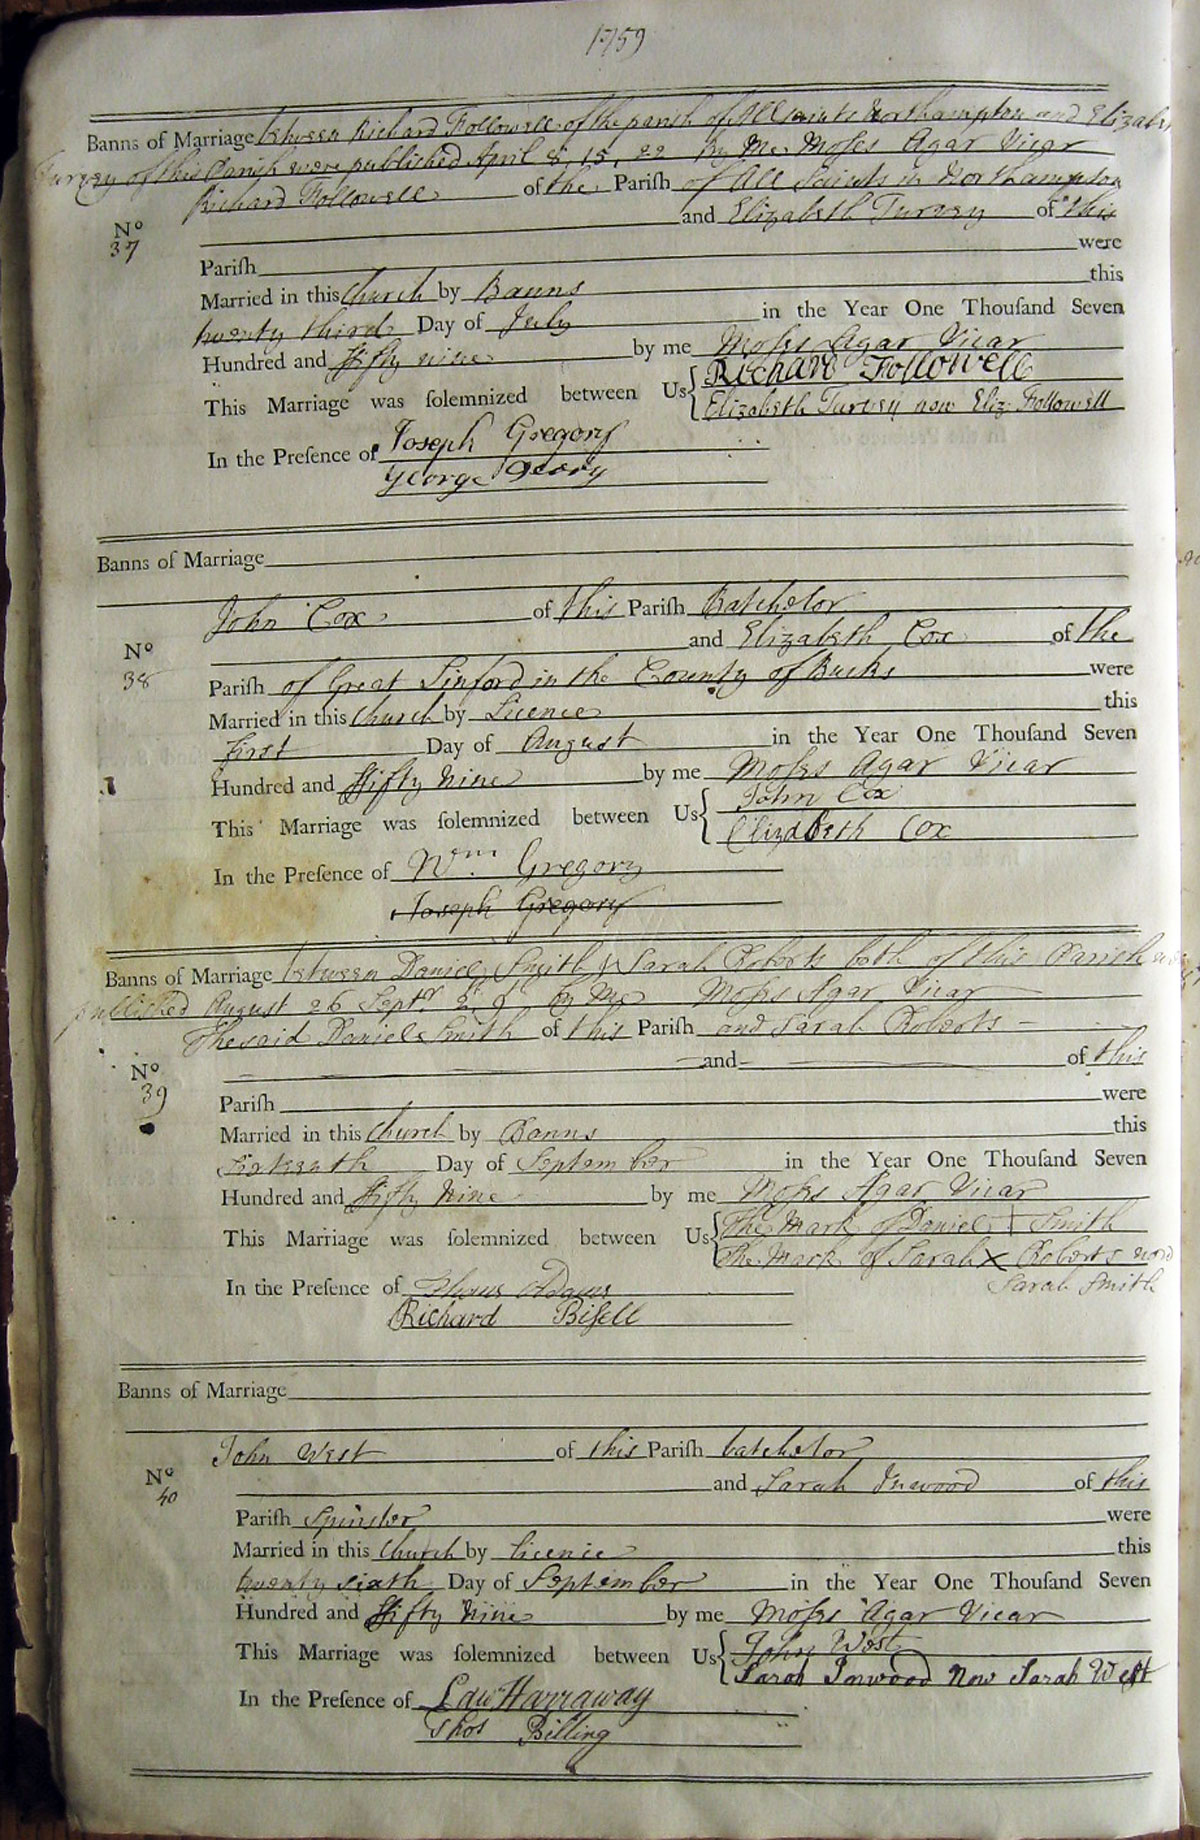 1759
Banns of Marriage between Richard Followell of the parish of All saints Northampton and Elizabeth
Turvey of this Parish were published April 8, 15, 22 By Me Moses Agar Vicar
Richard Followell of the Pariſh of All Saints in Northampton
Nº 37 and Elizabeth Turvey of this
Pariſh were
Married in this Church by Banns this
twenty third Day of July in the Year One Thouſand Seven
Hundred and fifty nine by me Moſes Agar Vicar
This Marriage was ſolemnized between Us Richard Followell
Elizabeth Turvey now Eliz Followell
In the Preſence of Joseph Gregory
George
Banns of Marriage
John Cox of this Pariſh Batchelor
Nº 38 and Elizabeth Cox of the
Pariſh of Great Linford in the County of Bucks were
Married in this Church by Licence this
First Day of August in the Year One Thouſand Seven
Hundred and fifty Nine by me Moſes Agar Vicar
This Marriage was ſolemnized between Us John Cox
Elizabeth Cox
In the Preſence of Wm. Gregory
Joseph Gregory
Banns of Marriage between Daniel Smith & Sarah Roberts both of this Parish
published August 26 Septr 2d 9 by Me Moſes Agar Vicar
The said Daniel Smith of this Pariſh and Sarah Roberts
Nº 39 and of this
Pariſh were
Married in this Church by Banns this
Sixteenth Day of September in the Year One Thouſand Seven
Hundred and fifty Nine by me Moſes Agar Vicar
This Marriage was ſolemnized between Us The Mark of Daniel + Smith
The Mark of Sarah X Roberts now
Sarah Smith
In the Preſence of Adams
Richard Biſell
Banns of Marriage
John West of this Pariſh batchelor
Nº 40 and Sarah Inwood of this
Pariſh Spinster were
Married in this Church by licence this
twenty sixth Day of September in the Year One Thouſand Seven
Hundred and fifty Nine by me Moſes Agar Vicar
This Marriage was ſolemnized between Us John West
Sarah Inwood Now Sarah Weſt
In the Preſence of Law Harraway
Thos Billing